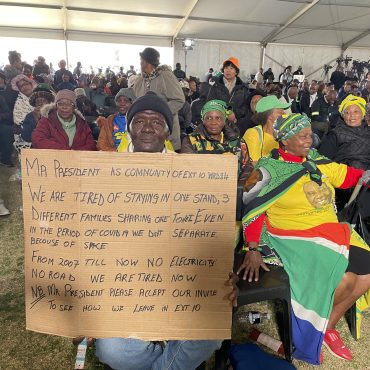 MR PRESIDENT AS COMMUNITY OF EXT 10 WRD34
WE ARE TIRED OF STAYING IN ONE STAND, 3
DIFFERENT FAMILIES SHARING ONE TOILET EVEN
IN THE PERIOD OF COVID 19 WE DID'T SEPARATE
BECAUSE OF SPACE
FROM 2007 TILL NOW NO ELECTRICITY
NO ROAD WE ARE TIRED NOW
NB MR PRESIDENT PLEASE ACCEPT OUR INVITE
TO SEE HOW WE LEAVE IN EXT 10